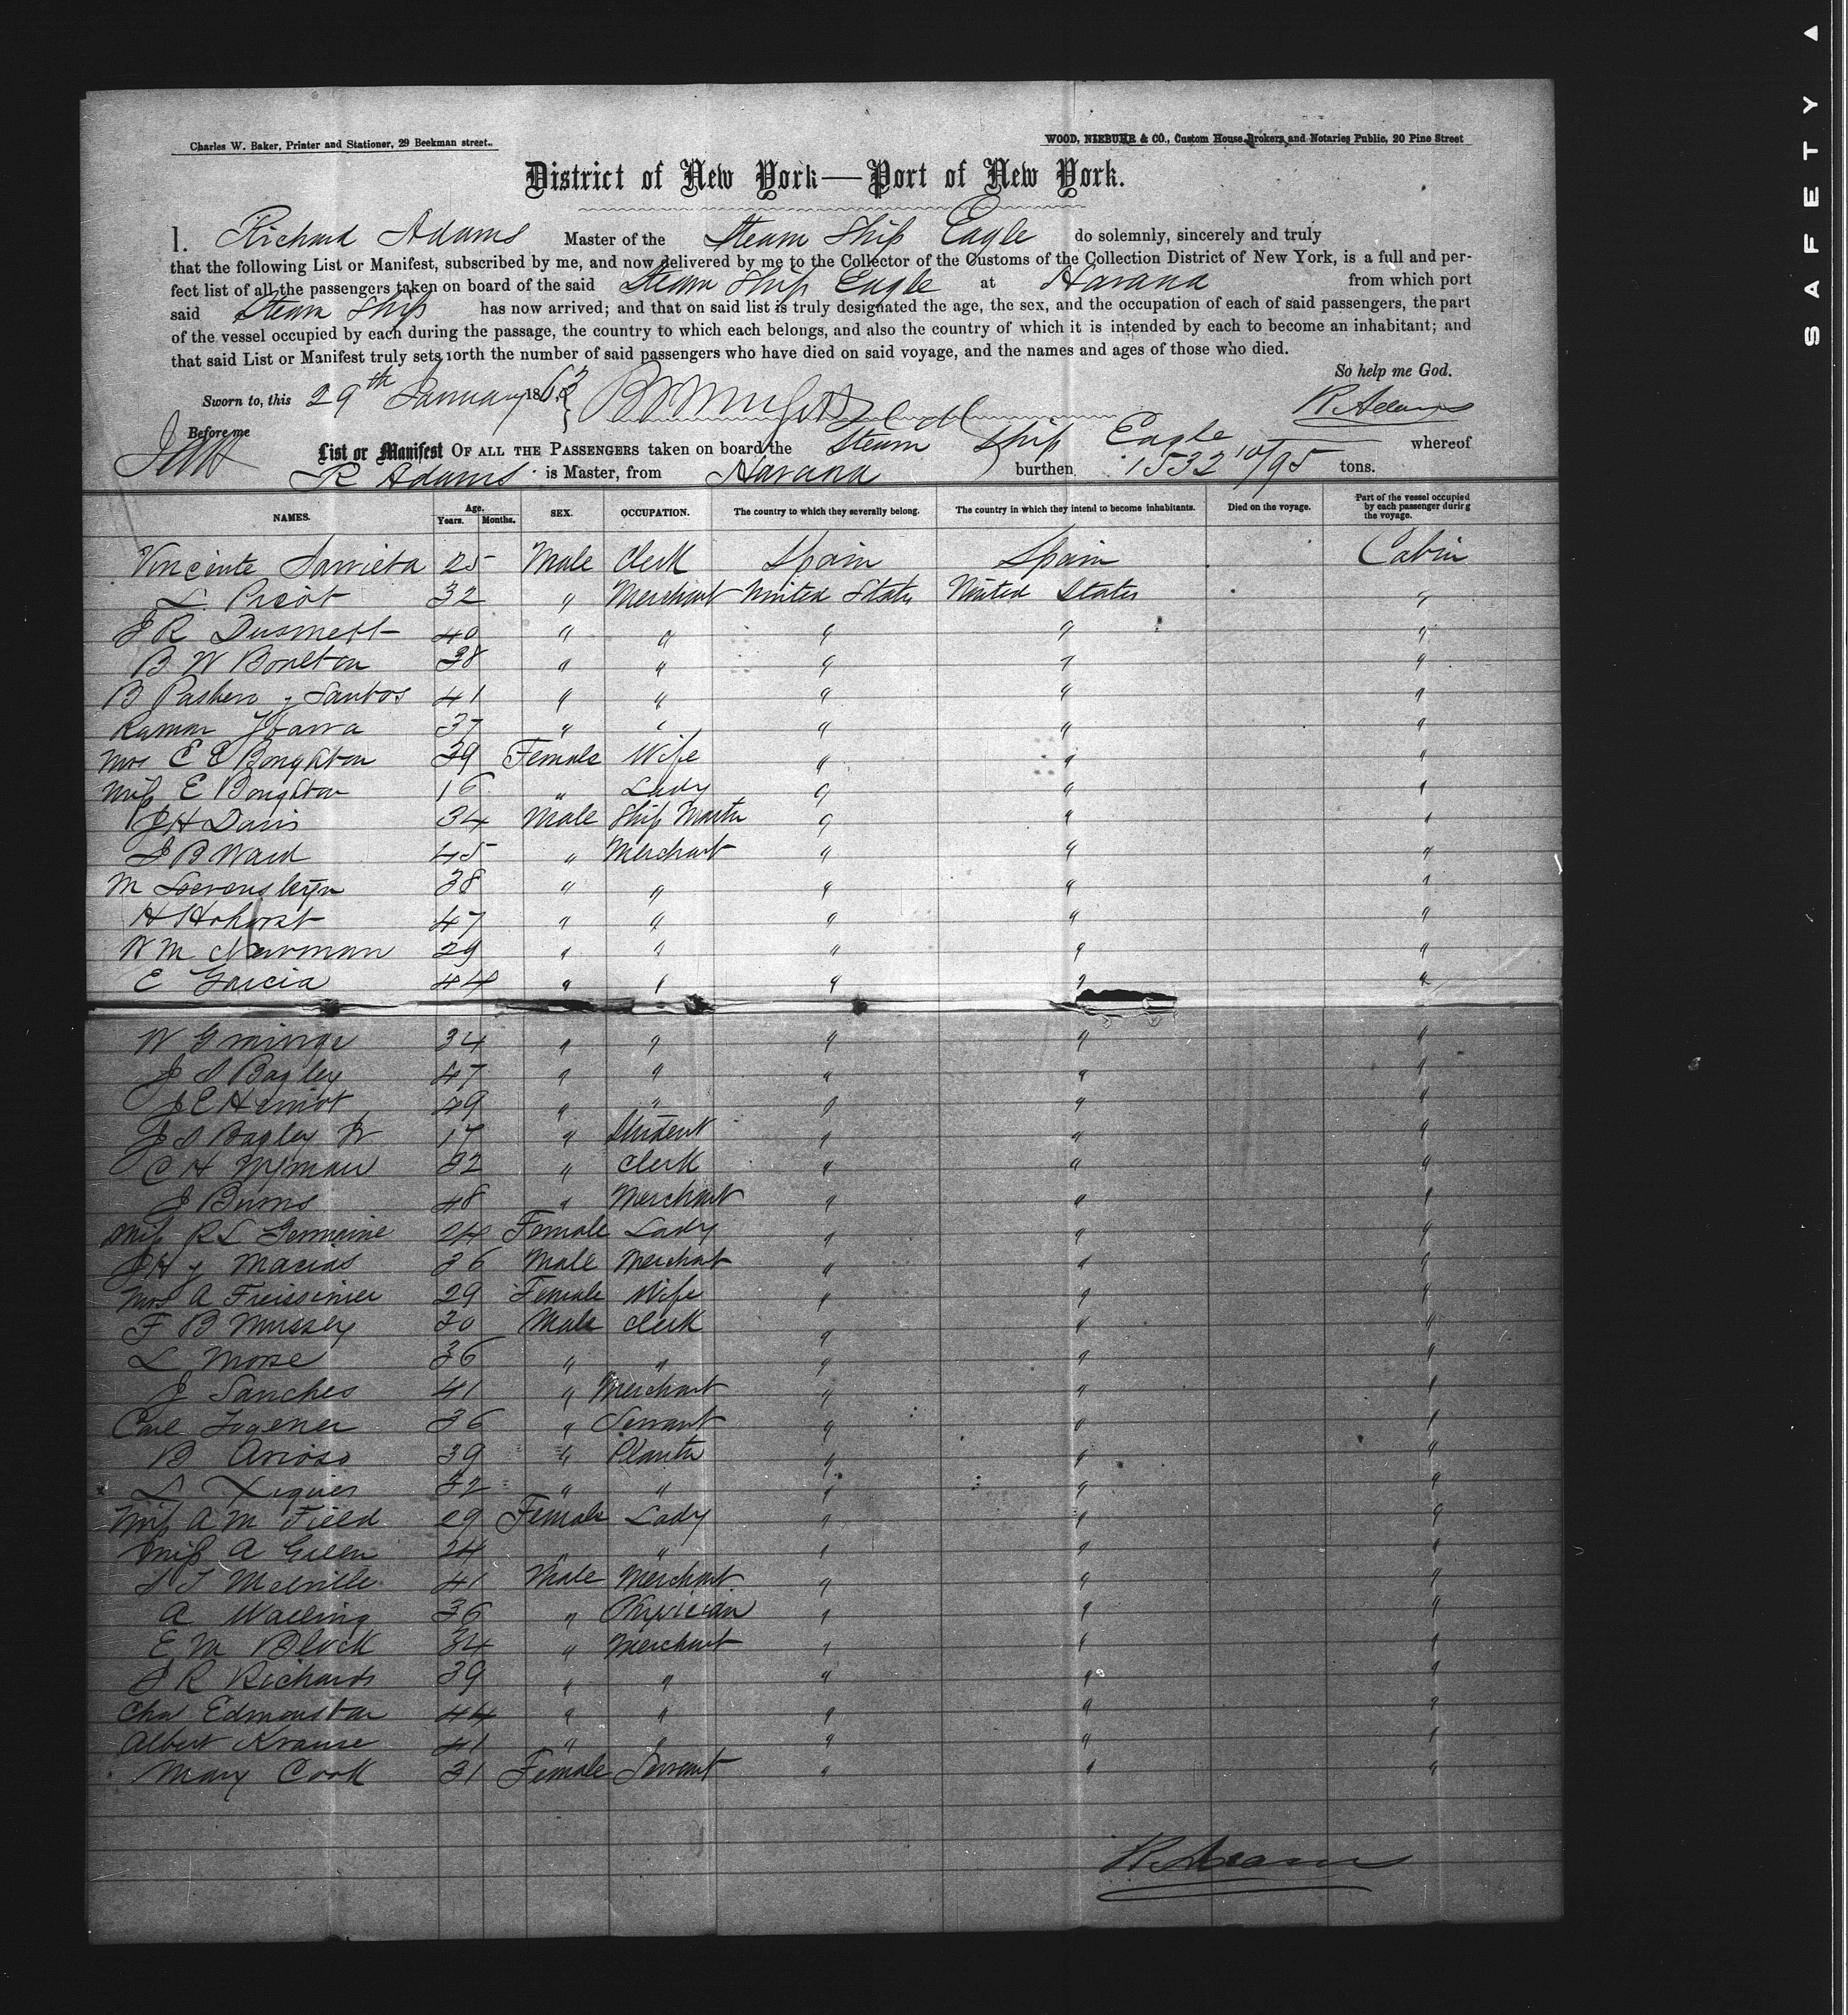 SAFETY ▲
Charles W. Baker, Printer and Stationer, 29 Beekman street.
WOOD, NIEBUHR & CO., Custom House Brokers and Notaries Public, 20 Pine Street
District of New York—Port of New York.
I. Richard Adams Master of the Steam Ship Eagle do solemnly, sincerely and truly
that the following List or Manifest, subscribed by me, and now delivered by me to the Collector of the Customs of the Collection District of New York, is a full and per-
fect list of all the passengers taken on board of the said Steam Ship Eagle at Havana from which port
said Steam Ship has now arrived; and that on said list is truly designated the age, the sex, and the occupation of each of said passengers, the part
of the vessel occupied by each during the passage, the country to which each belongs, and also the country of which it is intended by each to become an inhabitant; and
that said List or Manifest truly sets forth the number of said passengers who have died on said voyage, and the names and ages of those who died.
So help me God.
Sworn to, this 29th January 1863 R Adams
Before me
List or Manifest OF ALL THE PASSENGERS taken on board the Steam Ship Eagle whereof
R Adams is Master, from Havana burthen 1532 10/95 tons.
NAMES. Age. Years. Months. SEX. OCCUPATION. The country to which they severally belong. The country in which they intend to become inhabitants. Died on the voyage. Part of the vessel occupied by each passenger during the voyage.
Vincente Sarrieta 25 Male Clerk Spain Spain Cabin
L. Picot 32 " Merchant United States United States "
J R Dusmett 40 " " " " "
B W Boulton 38 " " " " "
B Pashero y Santos 41 " " " " "
Ramon Ybarra 37 " " " " "
Mrs E C Boughton 39 Female Wife " " "
Miss E Boughton 16 " Lady " " "
J H Davis 34 Male Ship Master " " "
J B Ward 45 " Merchant " " "
M 38 " " " " "
H Hohorst 47 " " " " "
W M Newman 29 " " " " "
E Garcia 44 " " " " "
W 34 " " " " "
J S Bagley 47 " " " " "
J C 49 " " " " "
J S Bagley Jr 17 " Student " " "
C H Wyman 32 " Clerk " " "
J Burns 48 " Merchant " " "
Miss R L Germaine 24 Female Lady " " "
J H y Macias 36 Male Merchant " " "
Mrs A 29 Female Wife " " "
F B Mussey 30 Male Clerk " " "
L Morse 36 " " " " "
J Sanches 41 " Merchant " " "
Carl 36 " Servant " " "
B Arioso 39 " Planter " " "
L Xiques 32 " " " " "
Miss A M Field 29 Female Lady " " "
Miss A Green 24 " " " " "
S T Melville 41 Male Merchant " " "
A Walling 36 " Physician " " "
E M Block 34 " Merchant " " "
J R Richards 39 " " " " "
Chas Edmonston 44 " " " " "
Albert Krause 41 " " " " "
Mary Cook 31 Female Servant " " "
R Adams